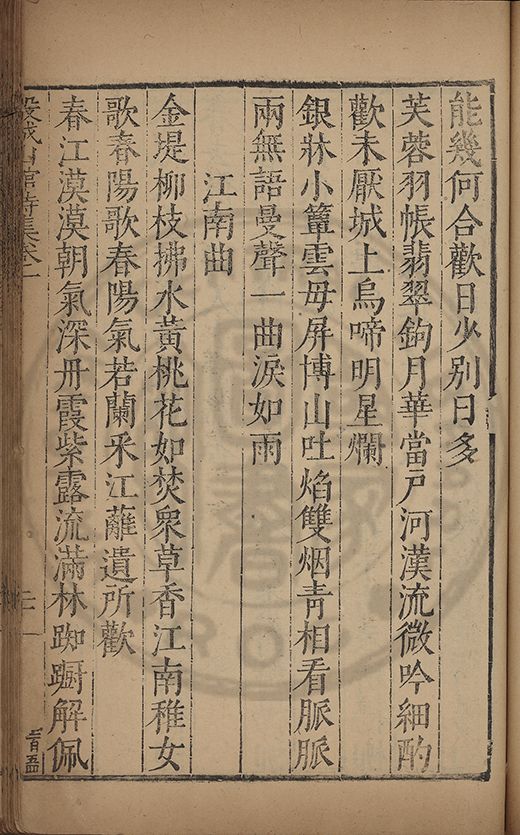 能幾何合歡日少別日多
芙蓉羽帳翡翠鉤月華當戶河漢流微吟細酌
歡未厭城上烏啼明星爛
銀牀小簟雲母屏博山吐焰雙烟青相看脈脈
兩無語曼聲一曲淚如雨
江南曲
金堤柳枝拂水黃桃花如焚衆草香江南稚女
歌春陽歌春陽氣若蘭釆江蘺遺所歡
春江漠漠朝氣深丹霞紫露流滿林踟躕解佩
館詩集卷一
二